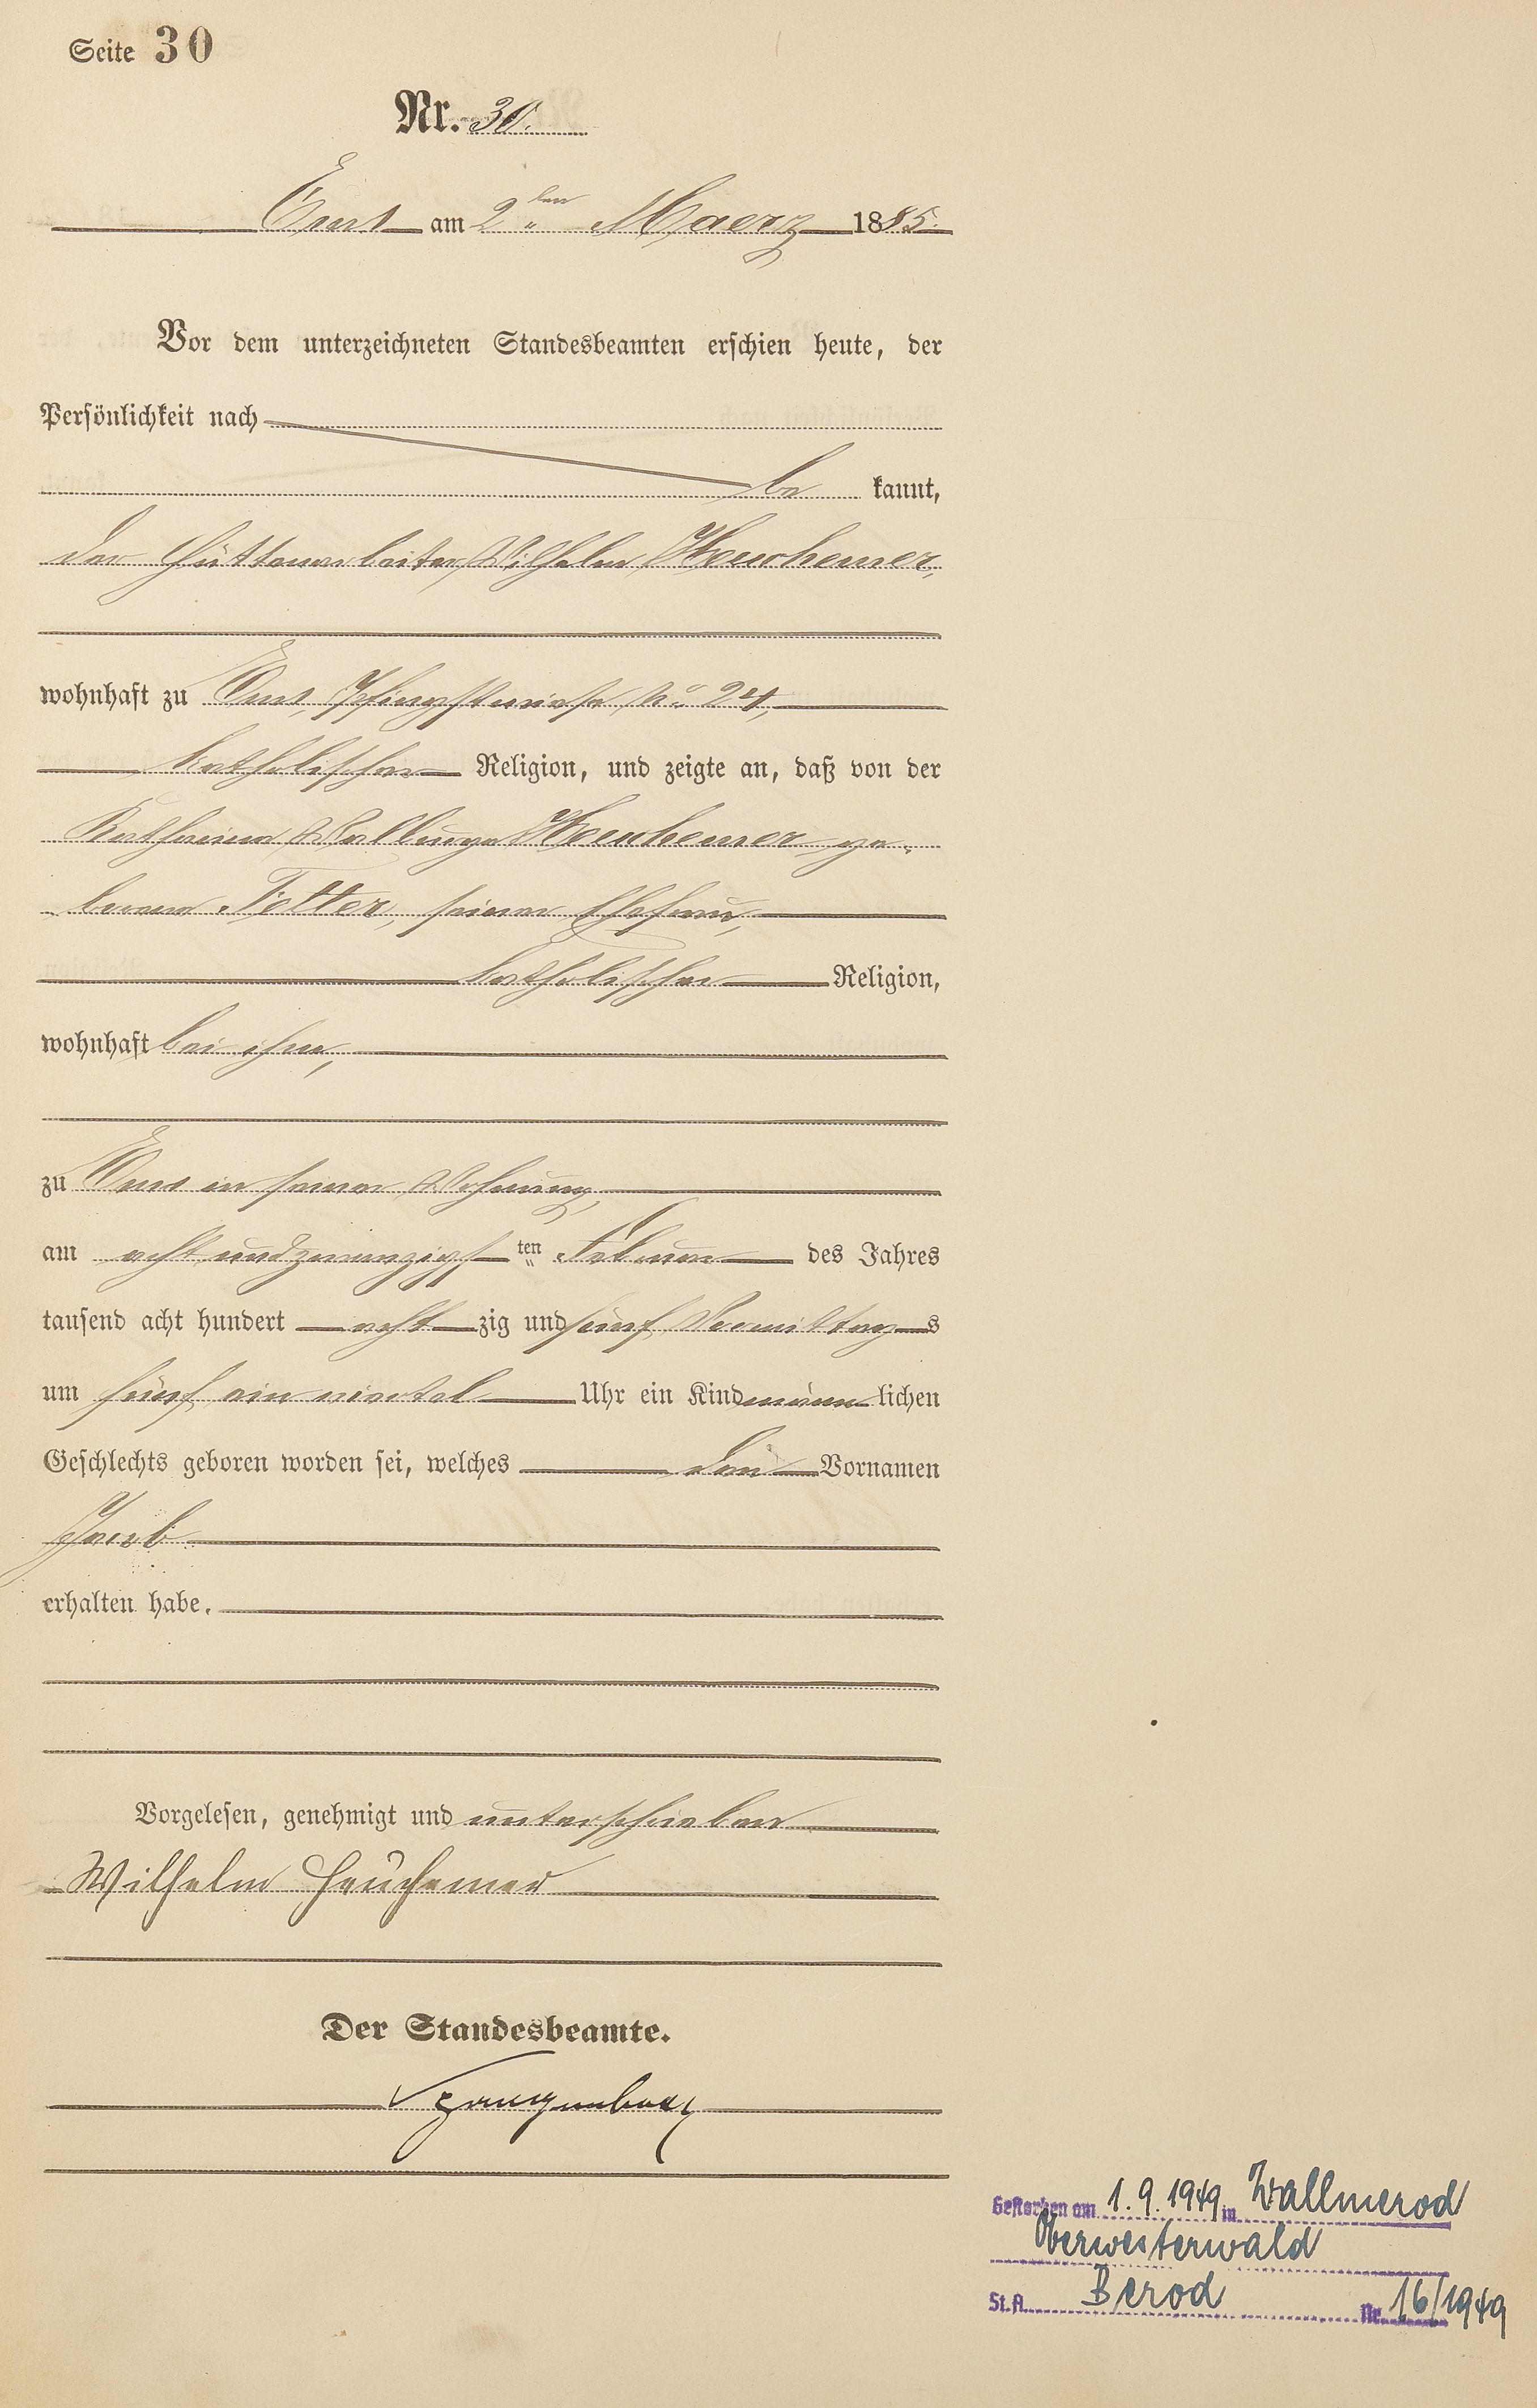 Seite 30
Nr. 30.
Ems am 2ten Maerz 1885.
Vor dem unterzeichneten Standesbeamten erschien heute, der
Persönlichkeit nach
be kannt,
der Hüttenarbeiter Wilhelm Heuchemer,
wohnhaft zu Ems, Pfingstwiese No. 24,
katholischer Religion, und zeigte an, daß von der
Katharina Walburga Heuchemer ge-
borenen seiner Ehefrau,
katholischer Religion,
wohnhaft bei ihm,
zu Ems in seiner Wohnung,
am acht und zwanzigsten Februar des Jahres
tausend acht hundert acht zig und fünf Vormittags
um fünf ein viertel Uhr ein Kind männlichen
Geschlechts geboren worden sei, welches den Vornamen
Jacob
erhalten habe.
Vorgelesen, genehmigt und unterschrieben
Wilhelm Heuchemer
Der Standesbeamte.
Gestorben am 1.9.1949 in Wallmerod
Oberwesterwald
St.A. Berod Nr. 16/1949